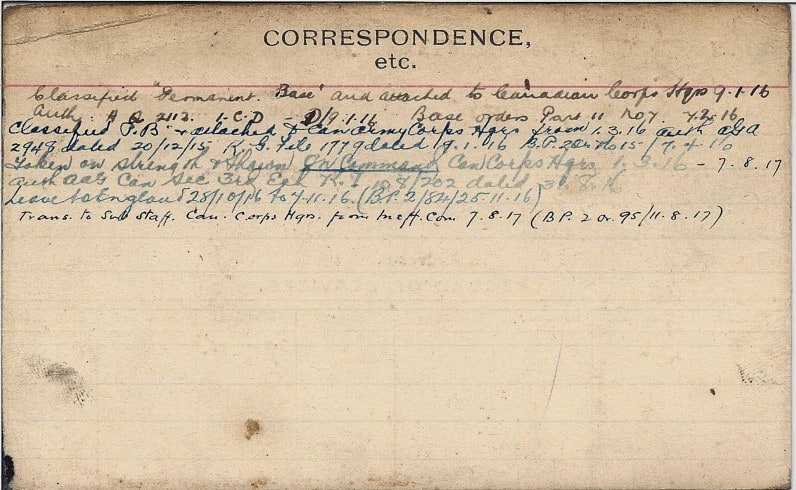 CORRESPONDENCE,
etc.
Classified "Permanent Base" and attached to Canadian Corps Hqrs 9.1.16
Auth: A G 2112. I.C.D - D/9.1.16 Base orders Part 11 No 7.
Classified P.B & attached Can Army Corps Hqrs from 1.3.16 auth AGA
2948 dated 20/12/15 File 1779 dated 19.1.16 No 15/7.4.16
Taken on strength & Shown On Command Can Corps Hqrs 1.3.16 - 7.8.17
auth AAG Can Sec 3rd Ech 10 8/202 dated 31.8.16
Leave to England 28/10/16 to 7.11.16. (B.P.2/84/25.11.16)
Trans. to staff. Can. Corps Hqrs. from Ineff. Con. 7.8.17 (B.P. 2 Or. 95/11.8.17)